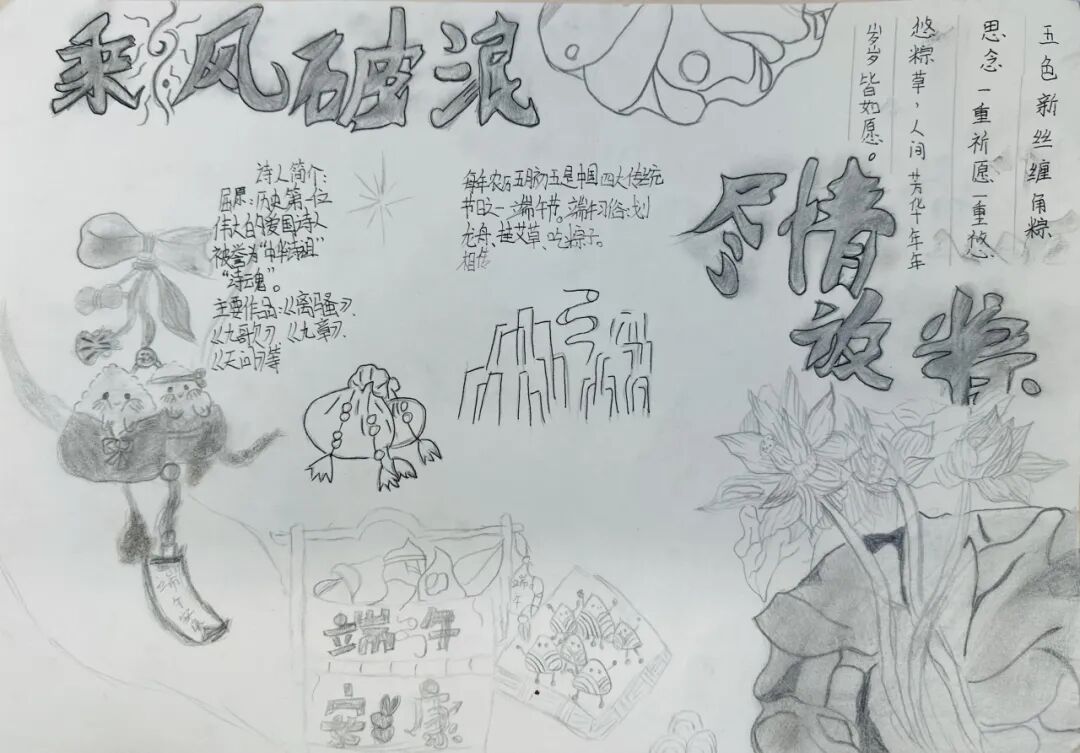 乘风破浪
五色新丝缠角粽
思念一重祈愿一重悠
悠粽草，人间芳华年年
岁岁皆如愿。
诗人简介：
屈原：历史第一位
伟大的爱国诗人
被誉为“中华诗祖”
“诗魂”。
主要作品：《离骚》、
《九歌》、《九章》、
《天问》等
每年农历五月初五是中国四大传统
节日之一端午节。端午习俗：划
龙舟、挂艾草、吃粽子。
相传
尽情
放粽
端午
端午
端午
安康